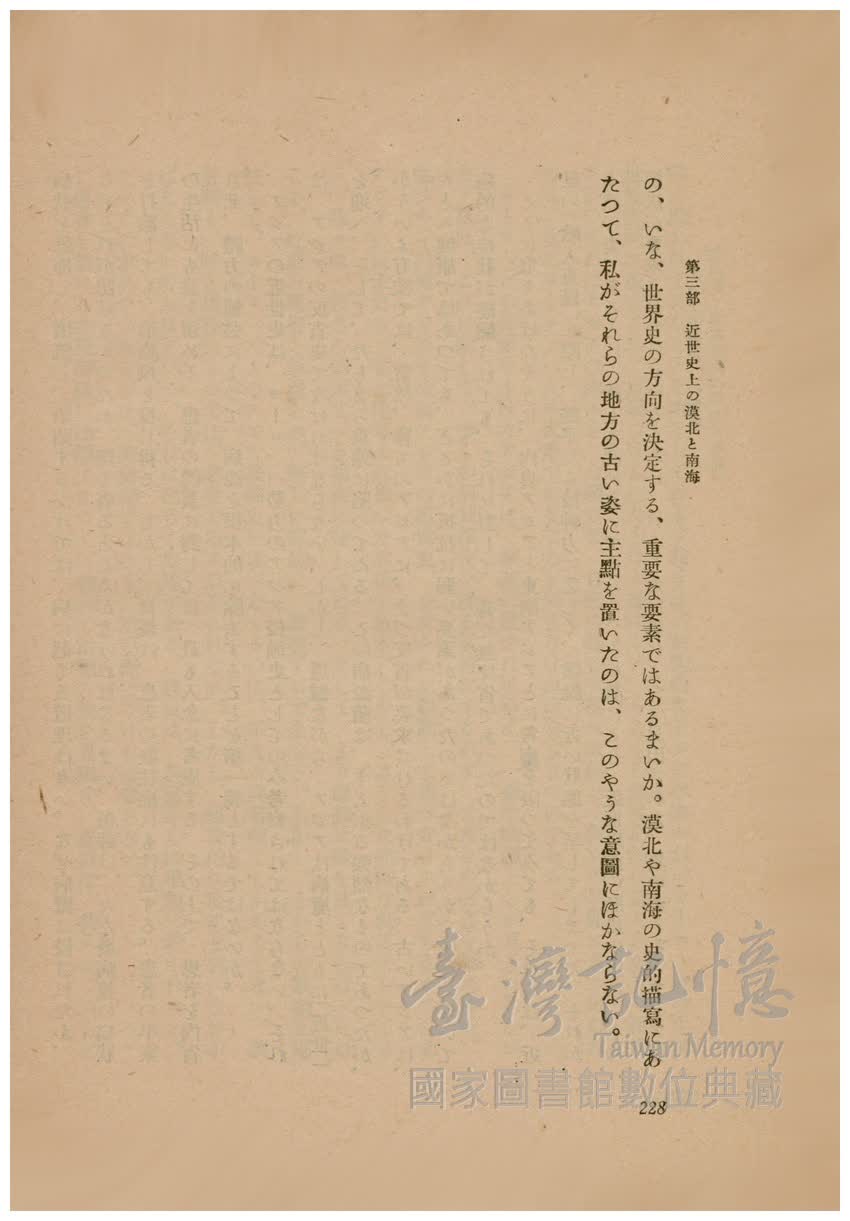 第三部 近世史上の漠北と南海
の、いな、世界史の方向を決定する、重要な要素ではあるまいか。漠北や南海の史的描寫にあ
たつて、私がそれらの地方の古い姿に主點を置いたのは、このやうな意圖にほかならない。
228
臺灣記憶
Taiwan Memory
國家圖書館數位典藏